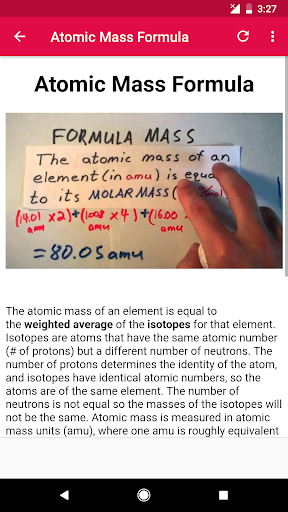 3:27
Atomic Mass Formula
Atomic Mass Formula
FORMULA MASS
The atomic mass of an
element (in amu) is
to its MOLAR MASS (
(14.01 x2)+(1.008 x 4)+(16.00
amu amu amu
=80.05 amu
The atomic mass of an element is equal to
the weighted average of the isotopes for that element.
Isotopes are atoms that have the same atomic number
(# of protons) but a different number of neutrons. The
number of protons determines the identity of the atom,
and isotopes have identical atomic numbers, so the
atoms are of the same element. The number of
neutrons is not equal so the masses of the isotopes will
not be the same. Atomic mass is measured in atomic
mass units (amu), where one amu is roughly equivalent